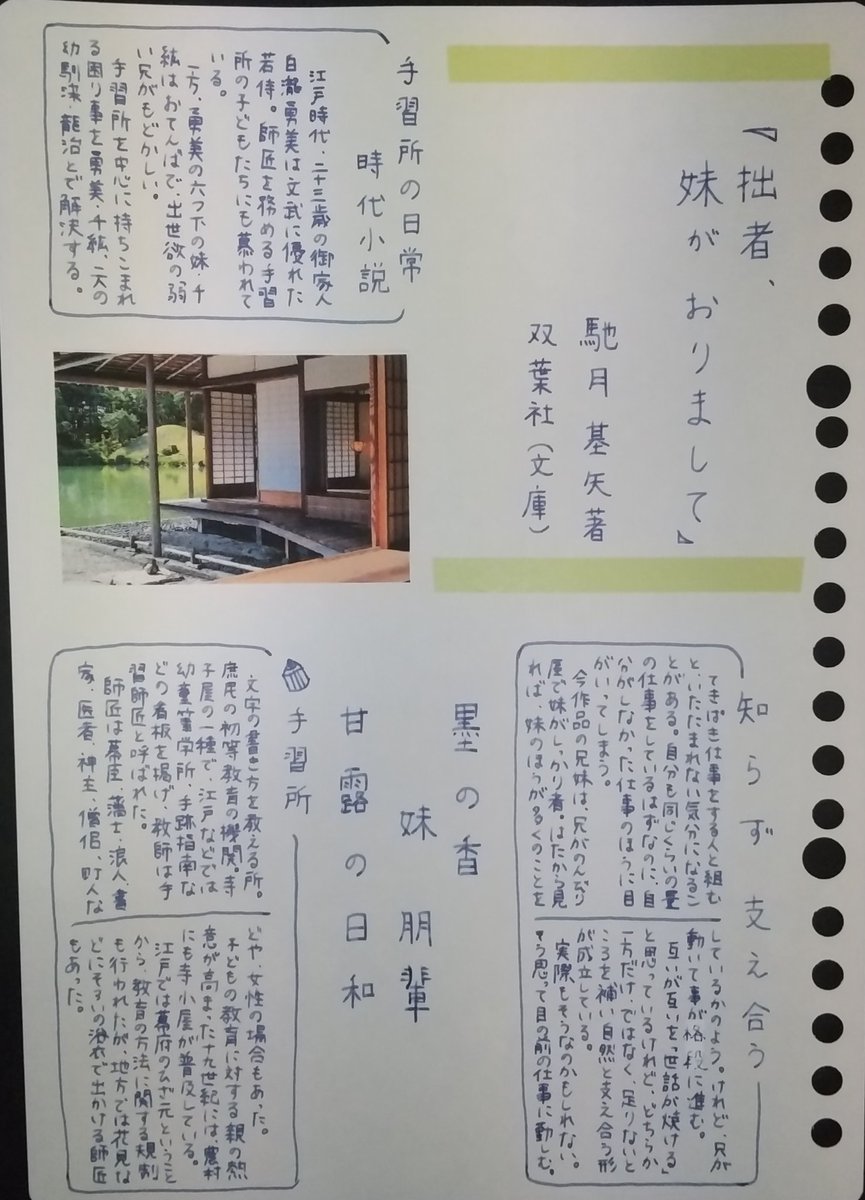 『拙者、
妹が おりまして』
馳月基矢著
双葉社(文庫)
手習所の日常
時代小説
江戸時代・二十三歳の御家人
白瀧勇美は文武に優れた
若侍。師匠を務める手習
所の子どもたちにも慕われて
いる。
一方、勇美の六つ下の妹・千
紘はおてんばで、出世欲の弱
い兄がもどかしい。
手習所を中心に持ちこまれ
る困り事を勇美・千紘、二人の
幼馴染・龍治とで解決する。
知らず 支え合う
てきぱき仕事をする人と組む
と、いたたまれない気分になるこ
とがある。自分も同じくらいの量
の仕事をしているはずなのに、自
分がしなかった仕事のほうに目
がいってしまう。
今作品の兄妹は、兄がのんびり
屋で妹がしっかり者。はたから見
れば、妹のほうが多くのことを
しているかのよう。けれど、兄が
動いて事が格段に進む。
互いが互いを「世話が焼ける」
と思っているけれど、どちらか
一方だけ、ではなく、足りないと
ころを補い自然と支え合う形
が成立している。
実際もそうなのかもしれない。
そう思って目の前の仕事に勤しむ。
墨の香
妹 朋輩
甘露の日和
手習所
文字の書き方を教える所。
庶民の初等教育の機関。寺
子屋の一種で、江戸などでは
幼童筆学所、手跡指南な
どの看板を掲げ、教師は手
習師匠と呼ばれた。
師匠は幕臣、藩士、浪人、書
家、医者、神主、僧侶、町人な
どや、女性の場合もあった。
子どもの教育に対する親の熱
意が高まった十九世紀には、農村
にも寺小屋が普及している。
江戸では幕府のひざ元ということ
から、教育の方法に関する規制
も行われたが、地方では花見な
どにそろいの浴衣で出かける師匠
もあった。